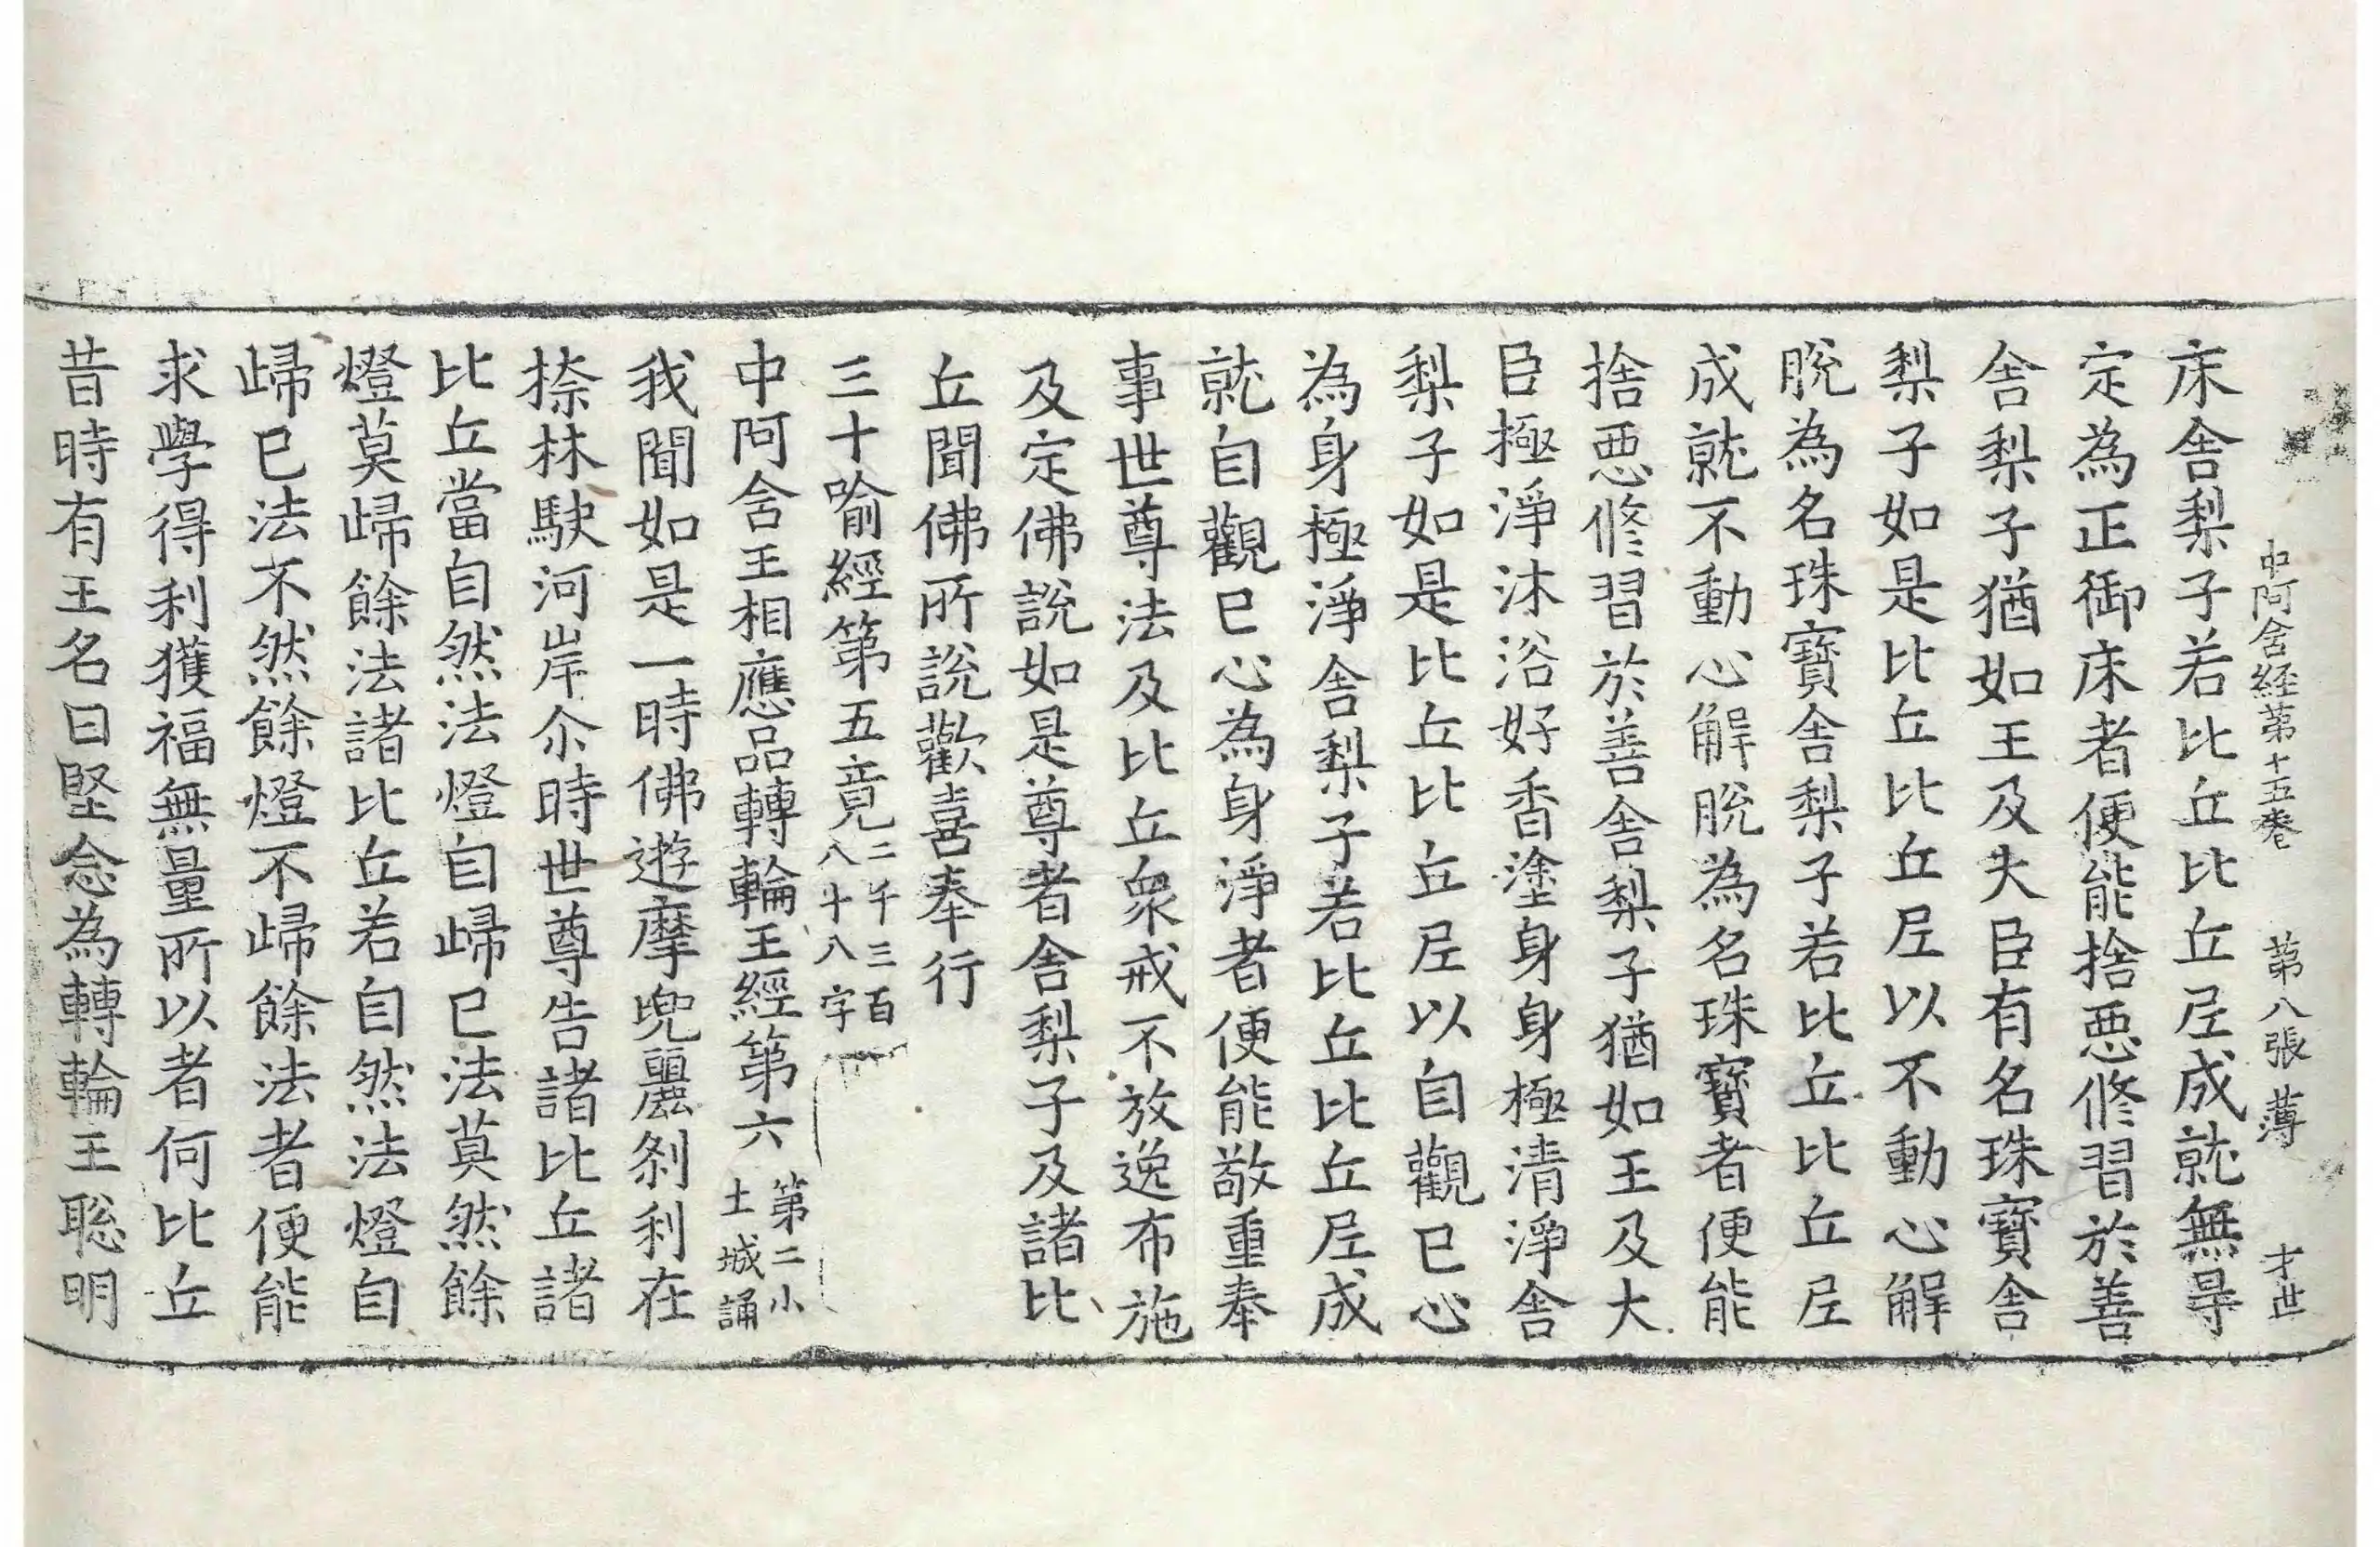 中阿含経第十五卷 第八張 薄 才世
床舍梨子若比丘比丘尼成就無㝵
定為正御床者便能捨惡修習於善
舍梨子猶如王及大臣有名珠寶舍
梨子如是比丘比丘尼以不動心解
脫為名珠寶舍梨子若比丘比丘尼
成就不動心解脫為名珠寶者便能
捨惡修習於善舍梨子猶如王及大
臣極淨沐浴好香塗身身極清淨舍
梨子如是比丘比丘尼以自觀已心
為身極淨舍梨子若比丘比丘尼成
就自觀已心為身淨者便能敬重奉
事世尊法及比丘衆戒不放逸布施
及定佛說如是尊者舍梨子及諸比
丘聞佛所說歡喜奉行
三十喻經第五竟二千三百八十八字
中阿含王相應品轉輪王經第六第二小土城誦
我聞如是一時佛遊摩兜麗剎利在
㮈林駃河岸尒時世尊告諸比丘諸
比丘當自然法燈自歸已法莫然餘
燈莫歸餘法諸比丘若自然法燈自
歸已法不然餘燈不歸餘法者便能
求學得利獲福無量所以者何比丘
昔時有王名曰堅念為轉輪王聡明